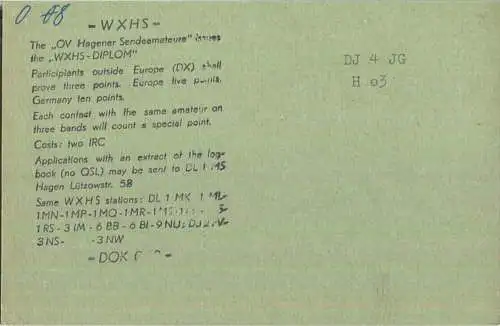 O 08
- WXHS -
The „OV Hagener Sendeamateure" issues
the „WXHS-DIPLOM"
Participiants outside Europe (DX) shall
prove three points. Europe five points.
Germany ten points.
Each contact with the same amateur on
three bands will count a special point.
Costs: two IRC
Applications with an extract of the log-
book (no QSL) may be sent to DL 1 MS
Hagen Lützowstr. 58
Same WXHS stations: DL 1 MK
1MN-1MP-1MQ-1MR-
1RS-3IM-6BB-6BI-9NU; DJ
3NS- -3NW
-DOK
DJ 4 JG
H 03